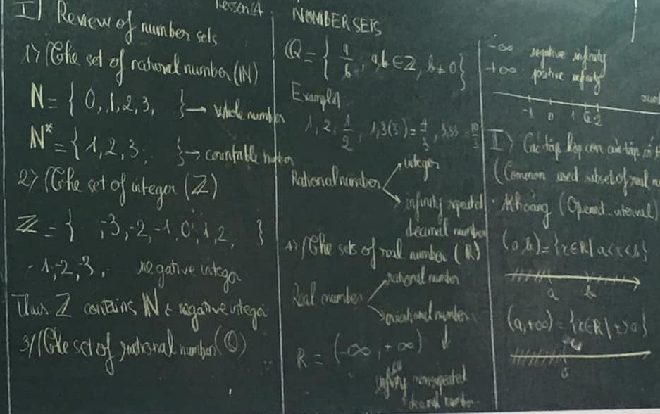 Lesson 4 NUMBER SETS
I) Review of number sets
1) The set of natural number (N)
N = { 0, 1, 2, 3, } → whole number
N* = { 1, 2, 3, } → countable number
2) The set of integer (Z)
Z = { , -3, -2, -1, 0, 1, 2, }
-1, -2, -3, negative integer
Thus Z contains N & negative integer
3) The set of rational number (Q)
Q = { a/b, a,b ∈ Z, b ≠ 0 }
Example
1, 2, 1/2, 1,3(3) = 4/3,
Rational number
integer
infinity repeated
decimal number
4) The sets of real number (R)
Real number
rational number
irrational number
R = (-∞, +∞)
infinity nonrepeated
decimal number
-∞ negative infinity
+∞ positive infinity
-1 0 1
I) Các tập hợp con của tập số
(Common used subset of real
Khoảng (Opened interval)
(a,b) = {x∈R | a<x<b}
a b
(a,+∞) = {x∈R | x>a}
a